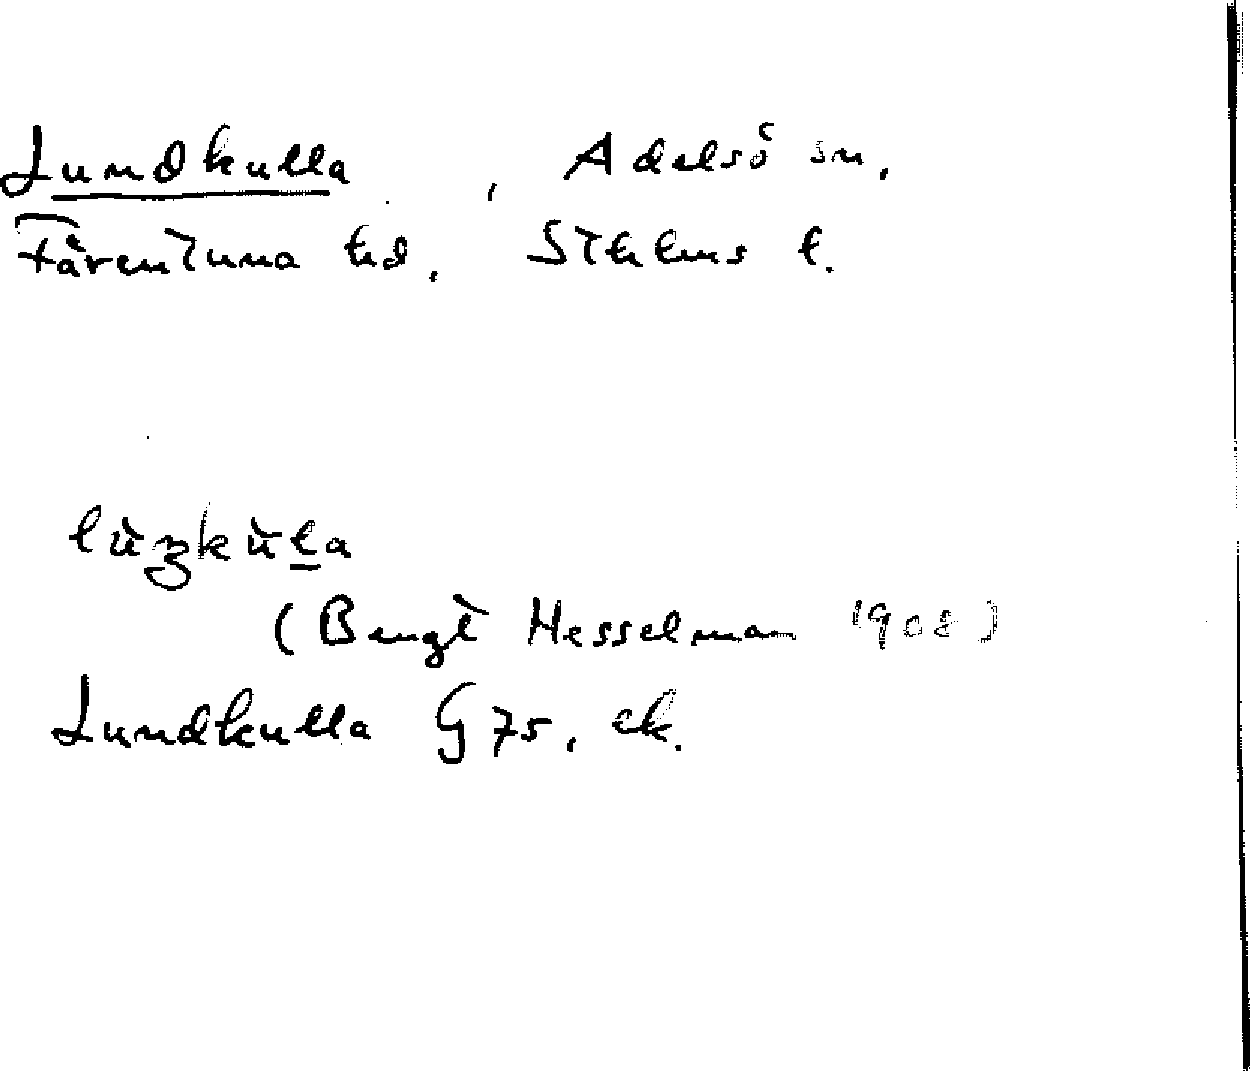 Lundkulla, Adelsö sn.
Färentuna hd, Sthlms l.
lùʒkùl̲a
(Bengt Hesselman 1908)
Lundkulla G 75, ek.